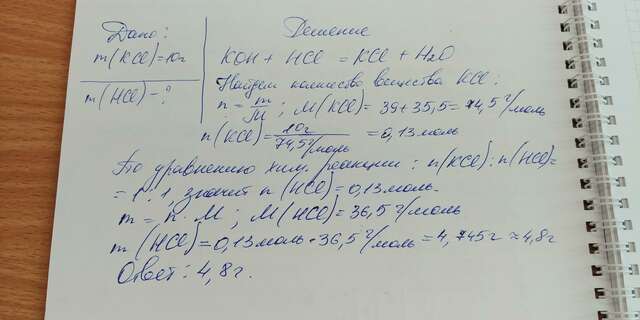 Дано:
m(KCl)=10г
m(HCl)-?
Решение
KOH + HCl = KCl + H2O
Найдем количество вещества KCl:
n = m/M; M(KCl) = 39+35,5 = 74,5 г/моль
n(KCl) = 10г/74,5г/моль = 0,13 моль
По уравнению хим. реакции: n(KCl):n(HCl)=
= 1:1 значит n(HCl)=0,13 моль.
m = n·M; M(HCl)=36,5 г/моль
m(HCl)=0,13моль·36,5 г/моль=4,745г≈4,8г
Ответ: 4,8г.